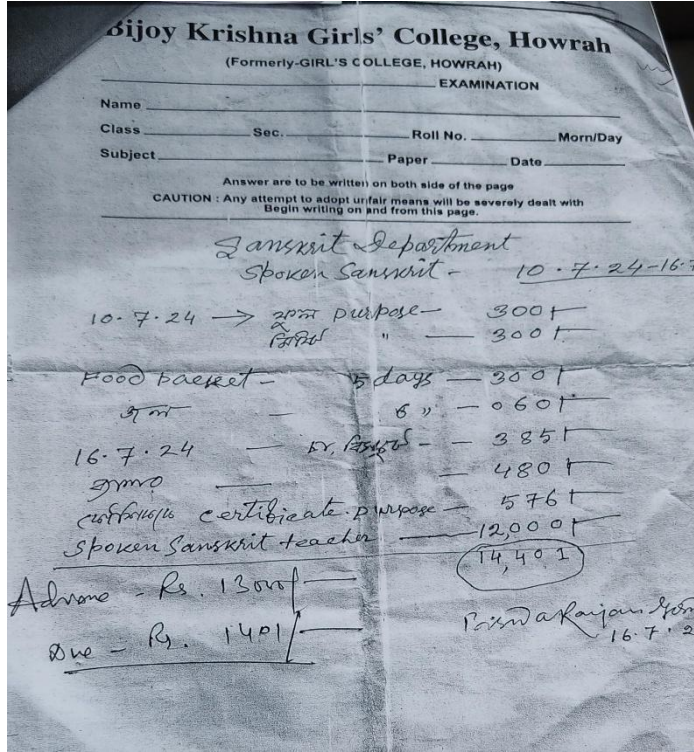 Bijoy Krishna Girls' College, Howrah
(Formerly-GIRL'S COLLEGE, HOWRAH)
EXAMINATION
Name
Class Sec. Roll No. Morn/Day
Subject Paper Date
Answer are to be written on both side of the page
CAUTION : Any attempt to adopt unfair means will be severely dealt with
Begin writing on and from this page.
Sanskrit Department
Spoken Sanskrit - 10.7.24-16.7
10.7.24 → ফুল purpose - 300/-
মিষ্টি " - 300/-
Food packet - 5 days - 300/-
জল - 6 " - 060/-
16.7.24 - চা, বিস্কুট - - 385/-
- 480/-
certificate purpose - 576/-
Spoken Sanskrit teacher - 12,000/-
14,401
Advance - Rs. 13000/-
Due - Rs. 1401/-
16.7.2